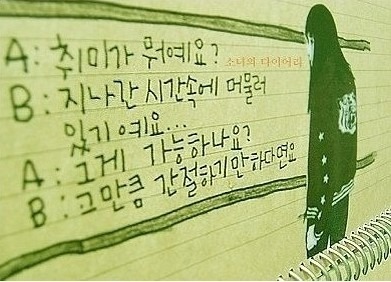 A: 취미가 뭐예요?
소녀의 다이어리
B: 지나간 시간속에 머물러
있기예요...
A: 그게 가능하나요?
B: 그만큼 간절하기만하다면요